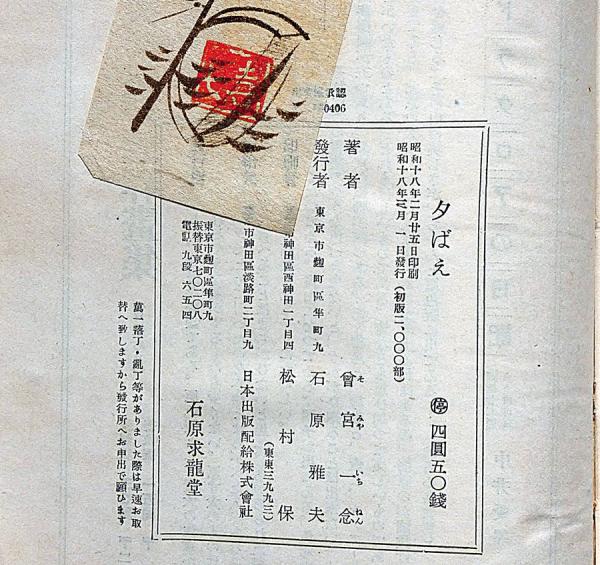 承認
0406
夕ばえ
㊡ 四圓五〇錢
昭和十八年二月廿五日印刷
昭和十八年三月 一 日發行(初版二、〇〇〇部)
著者 曾宮一念
そ みや いち ねん
發行者 東京市麴町區隼町九 石原雅夫
市神田區西神田一丁目四 松村保
(東東三九九三)
市神田區淡路町二丁目九 日本出版配給株式會社
石原求龍堂
東京市麴町區隼町九
振替東京七〇二〇八
電話 九段 六五四
萬一落丁・亂丁等がありました際は早速お取
替へ致しますから發行所へお申出で願ひます